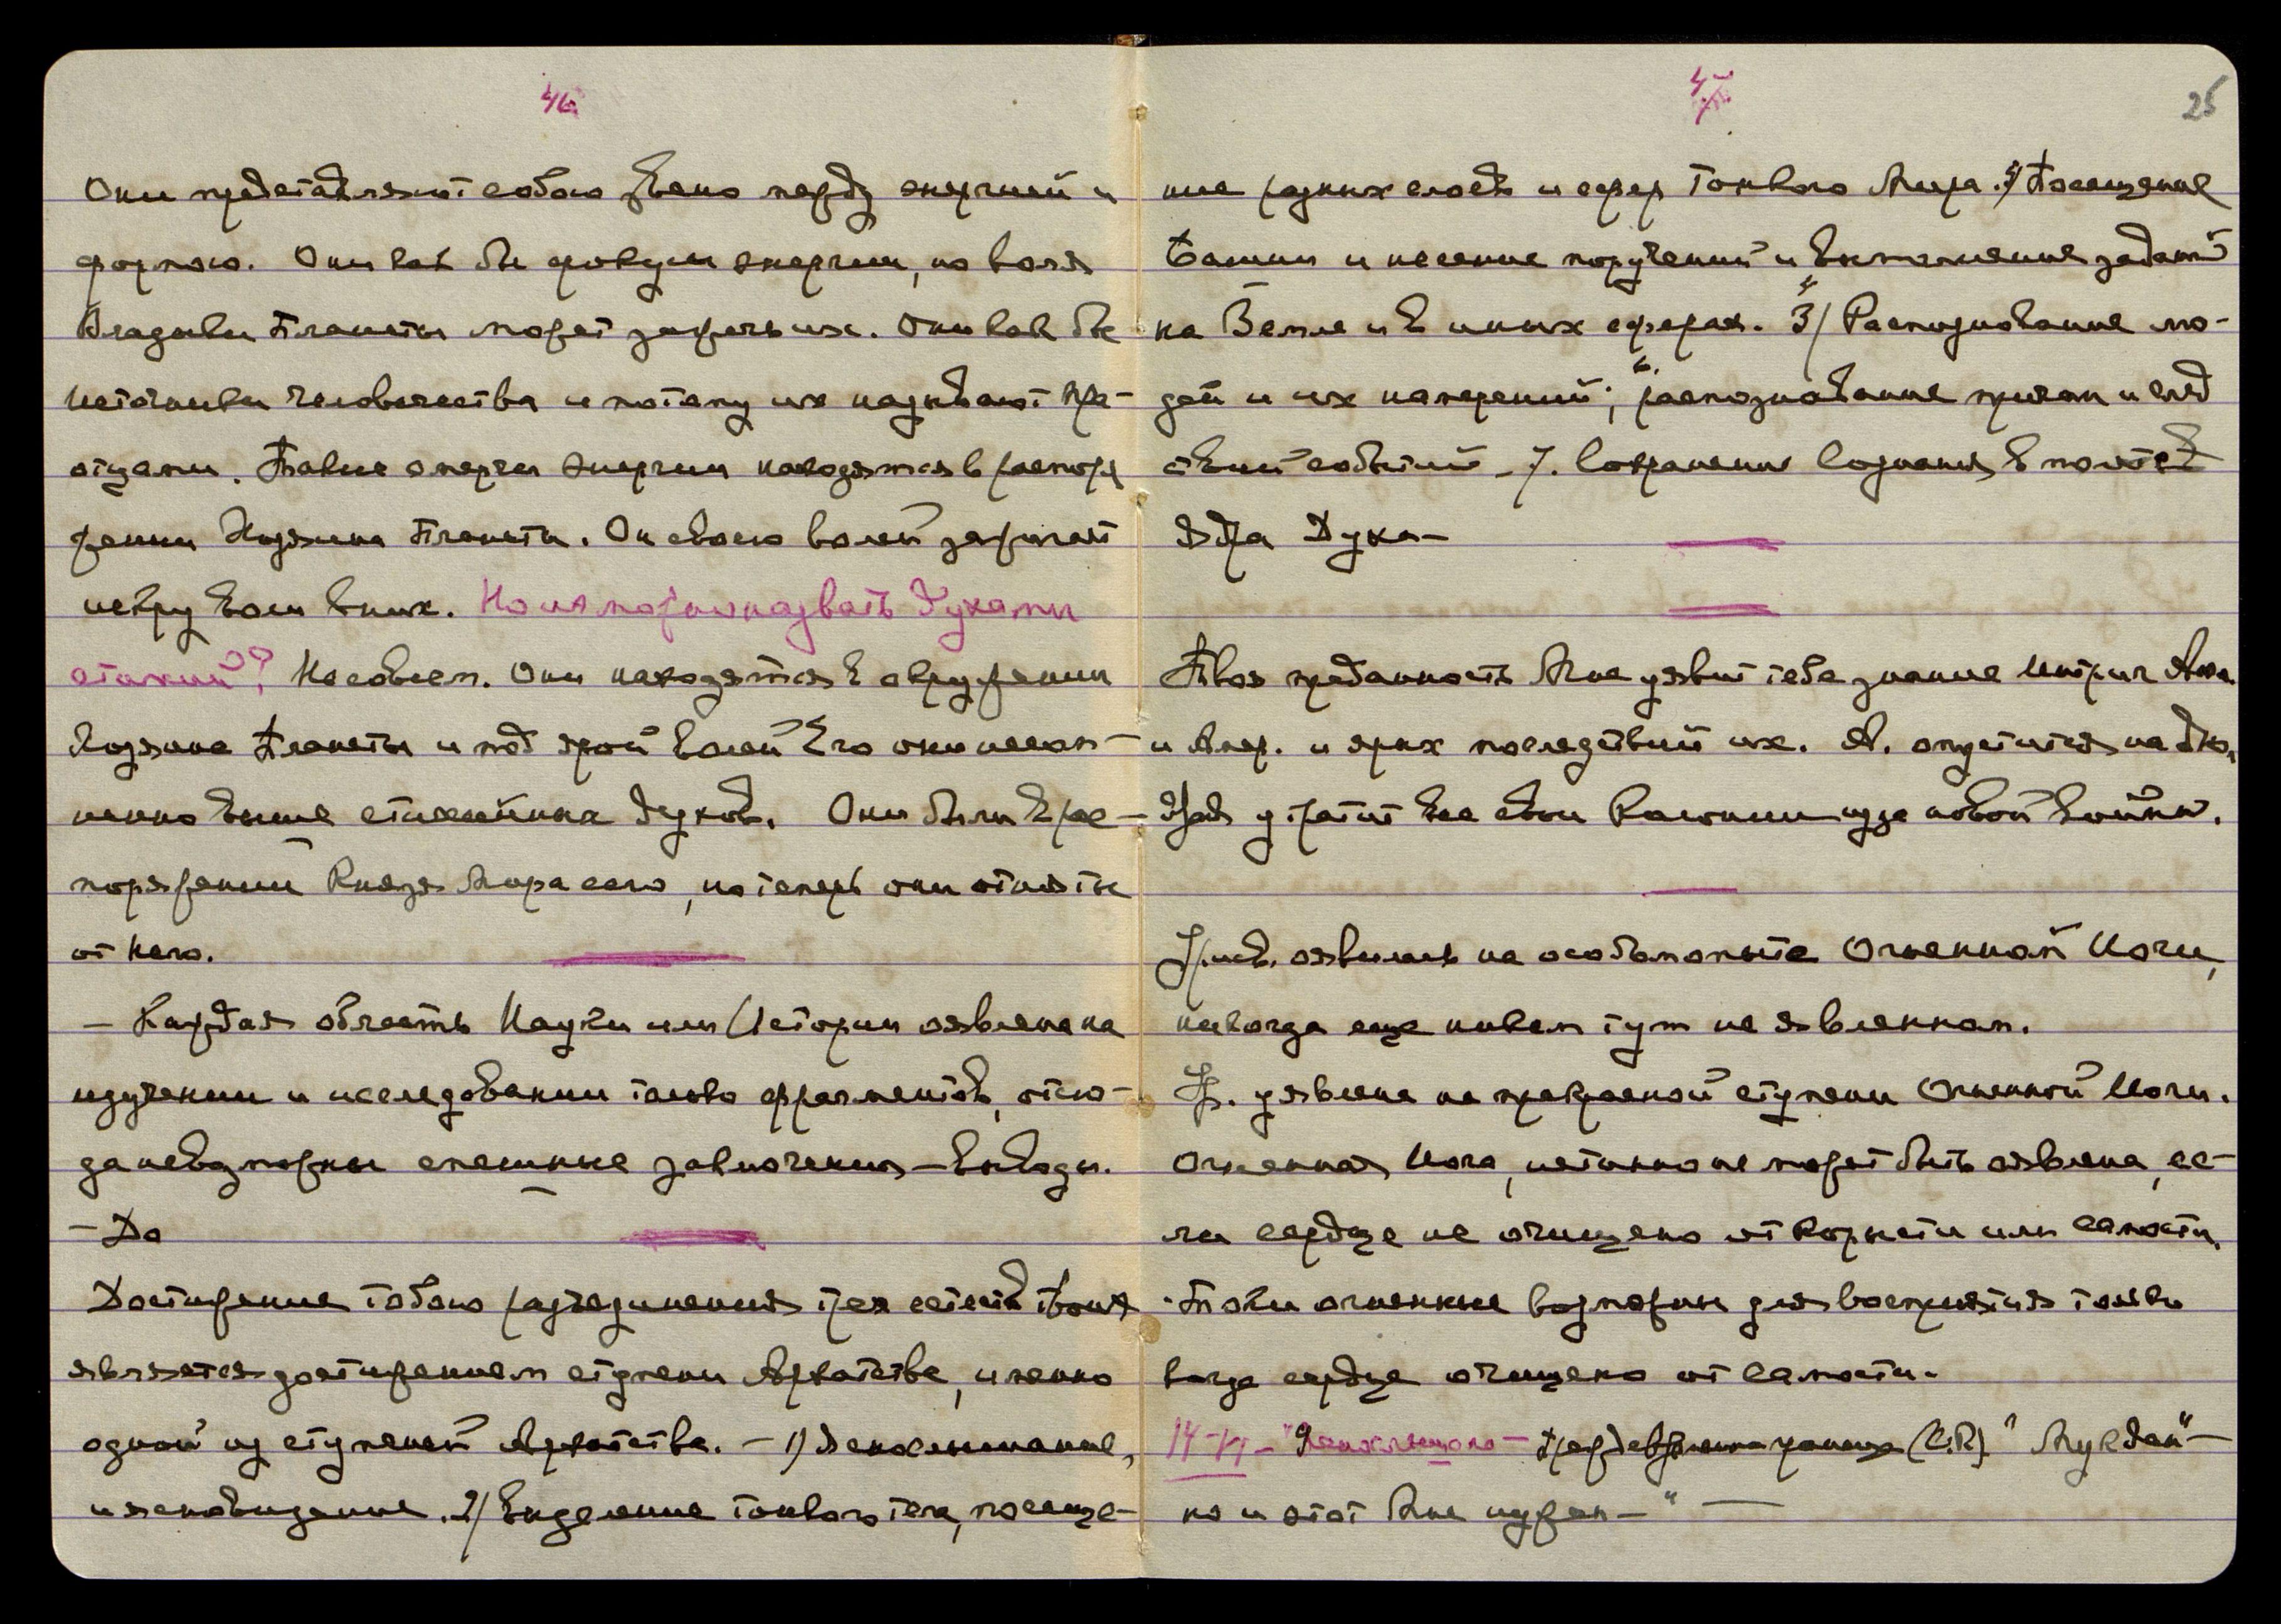 46.
Они представляют собою звено между энергией и
формою. Они как бы фокусы энергии, но воля
Владыки Планеты может зажечь их. Они как бы
источники человечества и потому их называют Пра-
отцами. Такие очерки энергии находятся в распоря
жении Хозяина Планеты. Он своею волей зажигает
искру воли в них. Но их можно назвать Духами
стихий? Не совсем. Они находятся в окружении
Хозяина Планеты и под ярой волей Его они несом-
ненно выше стихийных духов. Они были в рас-
поряжении Князя Мира сего, но теперь они отняты
от Него.
– Каждая область Науки или Истории оявлена на
изучении и исследовании только фрагментов, отсю-
да невозможны спешные заключения – выводы.
– Да
Достижение тобою разъединения трех естеств твоих
является достижением ступени Архатства, именно
одной из ступеней Архатства. – 1) Яснослышание,
и ясновидение. 2) Выделение тонкого тела, посеще-
25
ние разных слоев и сфер Тонкого Мира. Посещение
Башни и несение поручений и выполнение заданий
на Земле и в иных сферах. Распознавание лю-
дей и их намерений; распознавание причин и след
ствий событий – 7. Сохранение Сознания в полете
ядра Духа –
Твоя преданность Мне уявит тебе знание Интриг Анг.
и Амер. и ярых последствий их. А. опустится на дно,
утратит все свои Колонии из-за новой войны.
оявилась на особом опыте Огненной Йоги,
никогда еще никем тут не явленном.
Ур. уявлена на прекрасной ступени Огненной Йоги.
Огненная Йога, истинно не может быть оявлена, ес-
ли сердце не очищено от Корысти или Самости.
Токи огненные возможны для восприятия только
когда сердце очищено от Самости.
"Мукден" –
но и этот Мне нужен – "